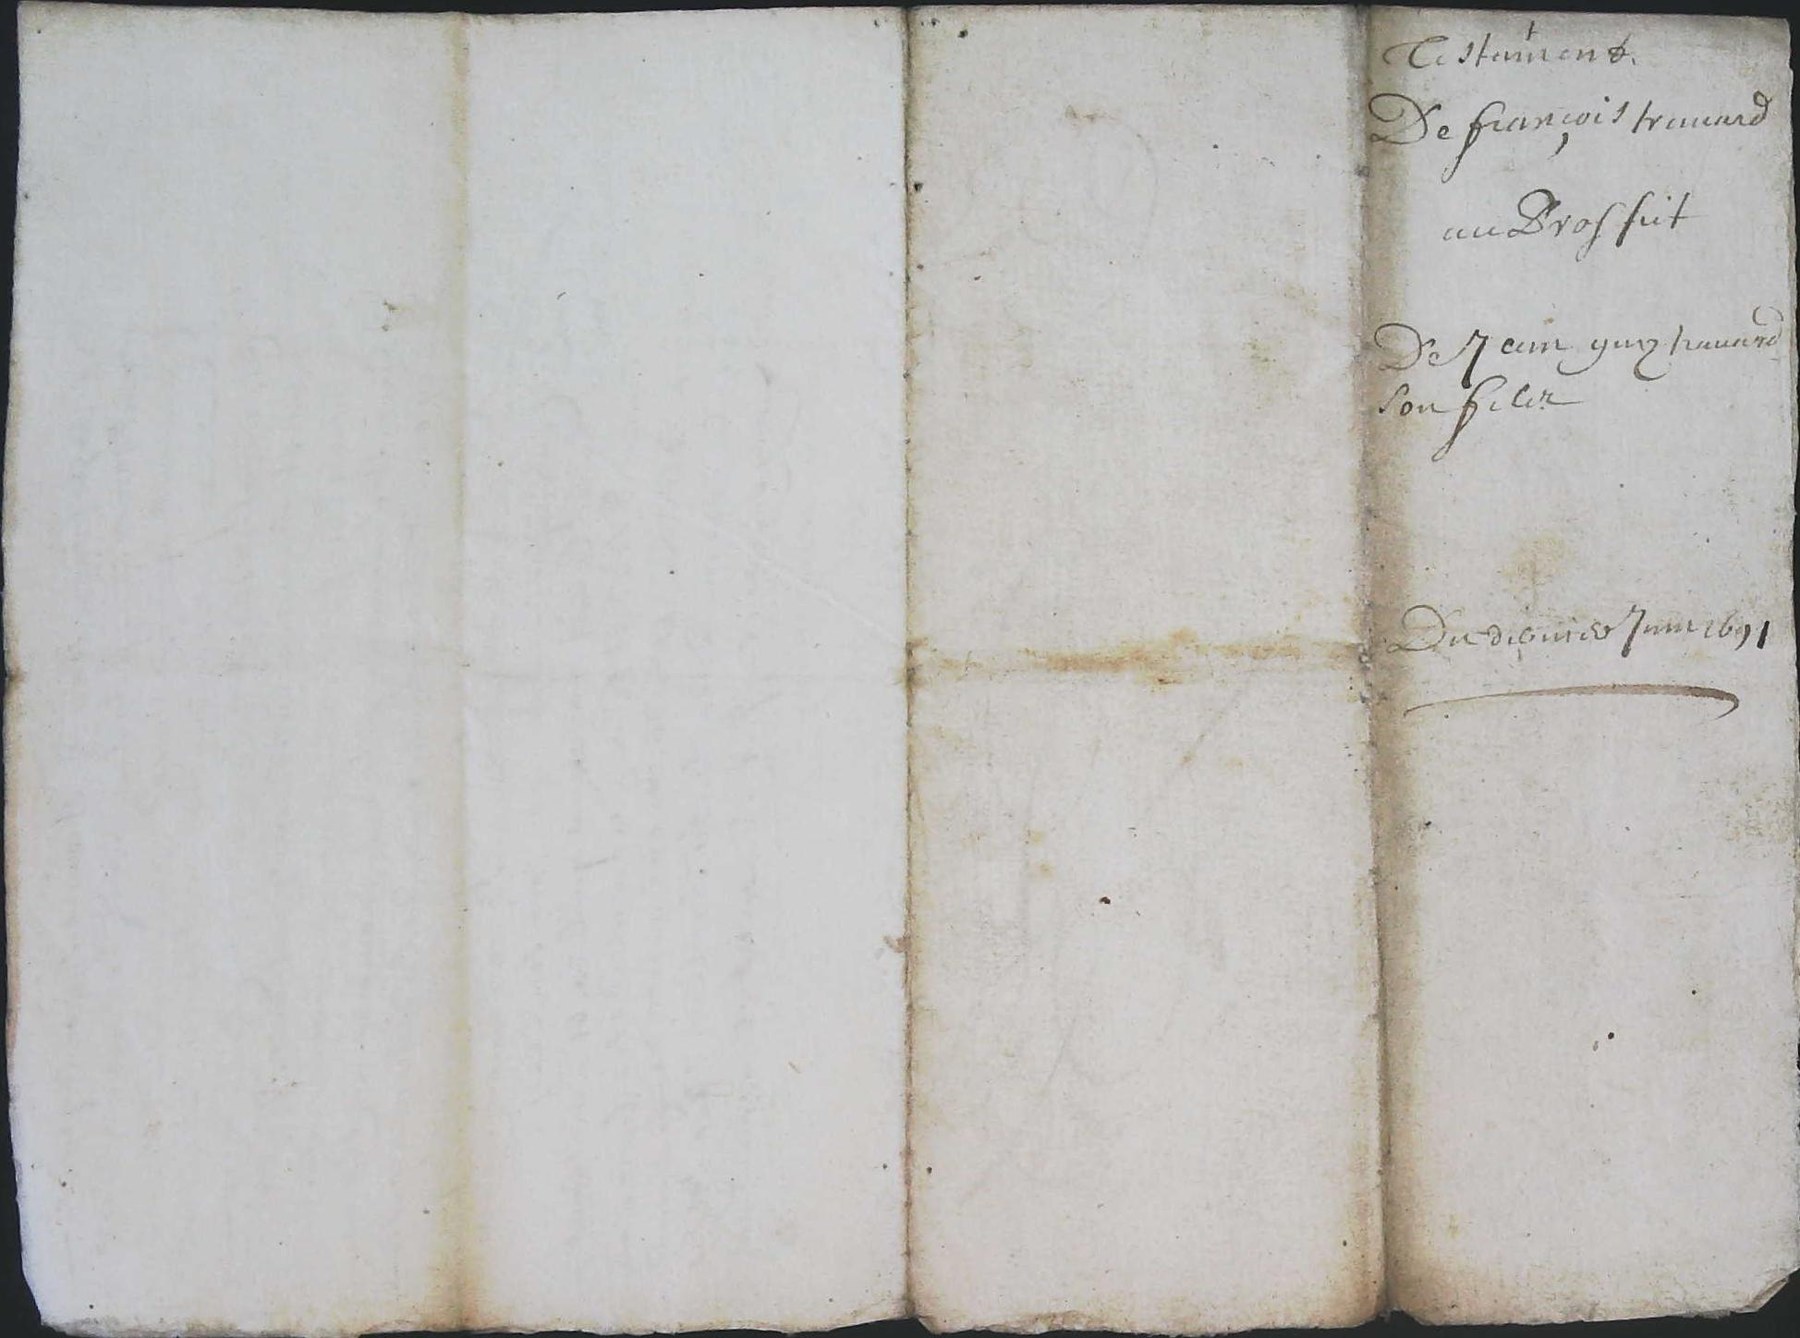 Testament
De françois trauard
au Proffit
De Jean guy trauard
son filz
Du dernier Juin 1691